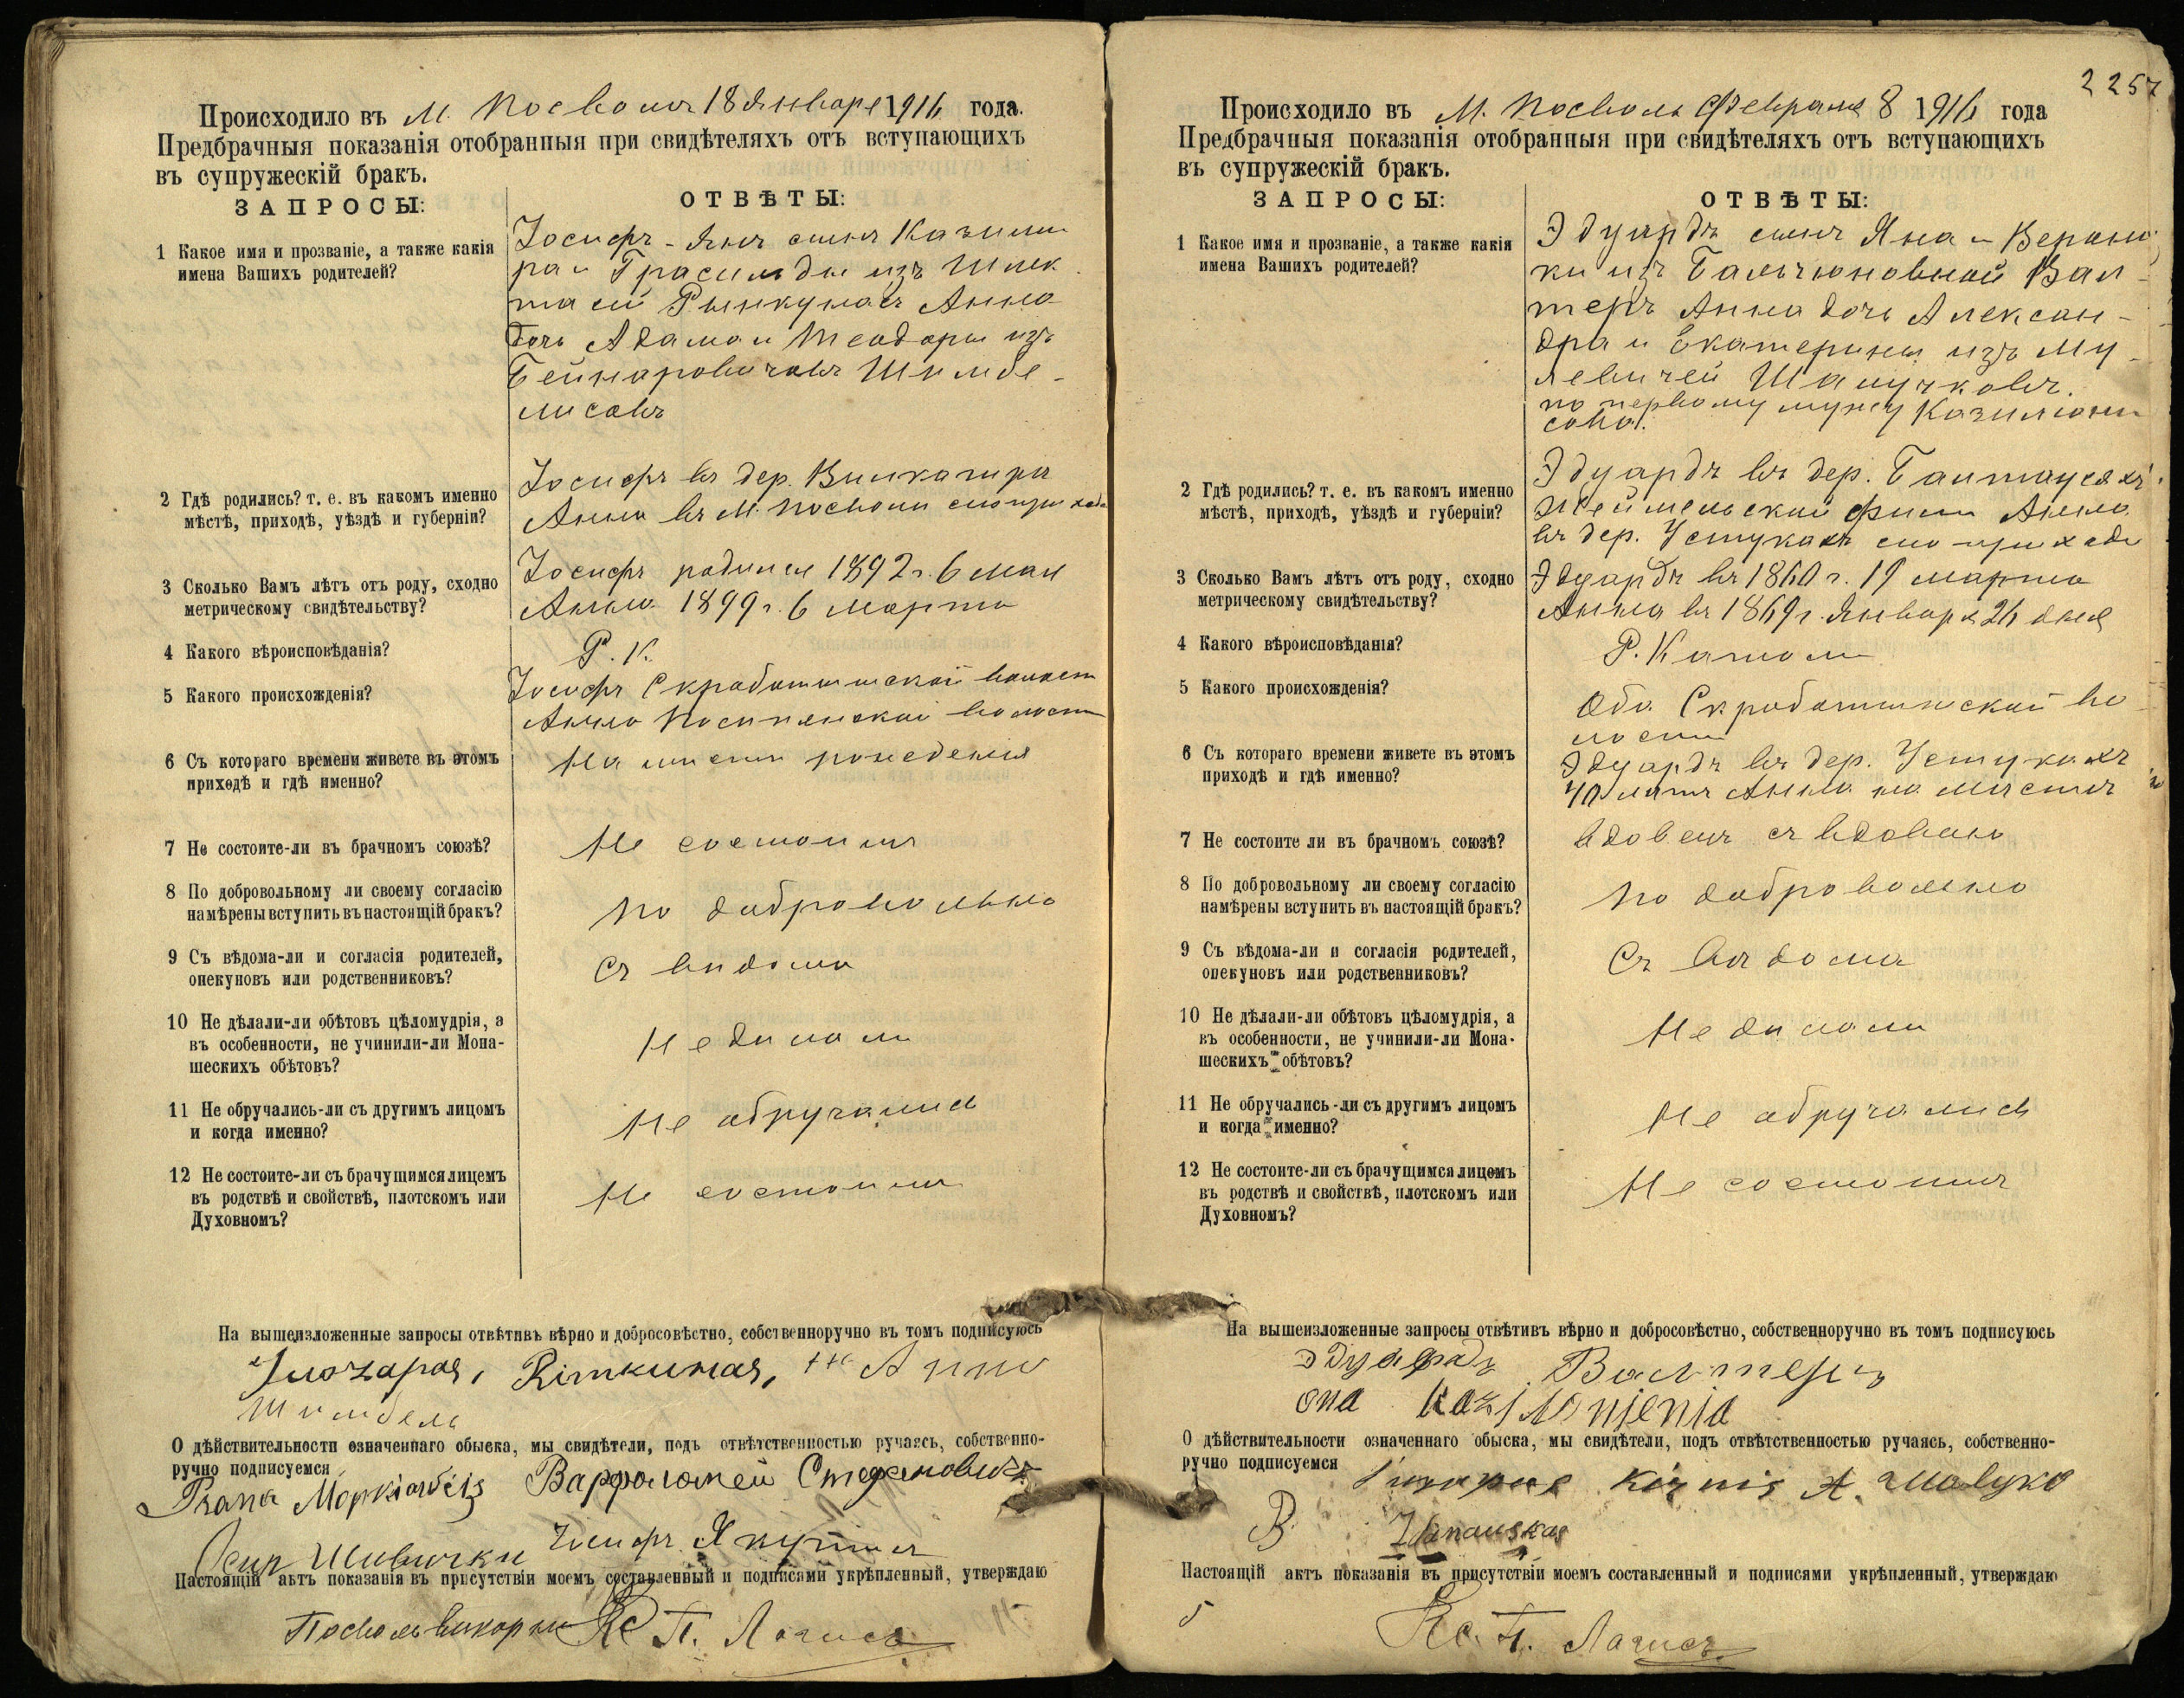 Происходило въ М. Посволь 18 Января 1916 года.
Предбрачныя показанія отобранныя при свидѣтеляхъ отъ вступающихъ
въ супружескій бракъ.
ЗАПРОСЫ:
ОТВѢТЫ:
1 Какое имя и прозваніе, а также какія
имена Вашихъ родителей?
Іосифъ-Янъ сынъ Казими
ра и
Рынкунасъ Анна
дочь Адама и Теодоры изъ
Бейнаровичовъ Шимбе-
лисовъ
2 Гдѣ родились? т. е. въ какомъ именно
мѣстѣ, приходѣ, уѣздѣ и губерніи?
Іосифъ въ дер.
Анна въ М. Посволи
3 Сколько Вамъ лѣтъ отъ роду, сходно
метрическому свидѣтельству?
Іосифъ родился 1892 г. 6 мая
Анна 1899 г. 6 Марта
4 Какого вѣроисповѣданія?
Р. К.
5 Какого происхожденія?
Іосифъ
Анна
6 Съ котораго времени живете въ этомъ
приходѣ и гдѣ именно?
На мѣстѣ рожденія
7 Не состоите-ли въ брачномъ союзѣ?
Не состоимъ
8 По добровольному ли своему согласію
намѣрены вступить въ настоящій бракъ?
По добровольно
9 Съ вѣдома-ли и согласія родителей,
опекуновъ или родственниковъ?
Съ вѣдома
10 Не дѣлали-ли обѣтовъ цѣломудрія, а
въ особенности, не учинили-ли Мона-
шескихъ обѣтовъ?
Не дѣлали
11 Не обручались-ли съ другимъ лицомъ
и когда именно?
Не обручались
12 Не состоите-ли съ брачущимся лицемъ
въ родствѣ и свойствѣ, плотскомъ или
Духовномъ?
Не состоимъ
На вышеизложенные запросы отвѣтивъ вѣрно и добросовѣстно, собственноручно въ томъ подписуюсь
Анна
О дѣйствительности означеннаго обыска, мы свидѣтели, подъ отвѣтственностью ручаясь, собственно-
ручно подписуемся
Варфоломей Стефановичъ
Іосифъ
Настоящій актъ показанія въ присутствіи моемъ составленный и подписями укрѣпленный, утверждаю
Кс. П. Лагисъ
2257
Происходило въ М. Посволь Февраля 8 1916 года
Предбрачныя показанія отобранныя при свидѣтеляхъ отъ вступающихъ
въ супружескій бракъ.
ЗАПРОСЫ:
ОТВѢТЫ:
1 Какое имя и прозваніе, а также какія
имена Вашихъ родителей?
Эдуардъ сынъ Яна и Верони
ки изъ Бальчюновной Вал-
теръ Анна дочь Алексан-
дра и Екатерины изъ Му-
левичей
по первому мужу Казилюни
сова.
2 Гдѣ родились? т. е. въ какомъ именно
мѣстѣ, приходѣ, уѣздѣ и губерніи?
Эдуардъ въ дер.
Анна
въ дер. Устукахъ
3 Сколько Вамъ лѣтъ отъ роду, сходно
метрическому свидѣтельству?
Эдуардъ въ 1860 г. 19 марта
Анна въ 1869 г. Января 26 дня
4 Какого вѣроисповѣданія?
Р. Катол
5 Какого происхожденія?
Оба
6 Съ котораго времени живете въ этомъ
приходѣ и гдѣ именно?
Эдуардъ въ дер. Устукахъ
40 лѣтъ Анна на мѣстѣ
7 Не состоите ли въ брачномъ союзѣ?
вдовецъ съ вдовою
8 По добровольному ли своему согласію
намѣрены вступить въ настоящій бракъ?
По добровольно
9 Съ вѣдома-ли и согласія родителей,
опекуновъ или родственниковъ?
Съ вѣдома
10 Не дѣлали-ли обѣтовъ цѣломудрія, а
въ особенности, не учинили-ли Мона-
шескихъ обѣтовъ?
Не дѣлали
11 Не обручались-ли съ другимъ лицомъ
и когда именно?
Не обручались
12 Не состоите-ли съ брачущимся лицемъ
въ родствѣ и свойствѣ, плотскомъ или
Духовномъ?
Не состоимъ
На вышеизложенные запросы отвѣтивъ вѣрно и добросовѣстно, собственноручно въ томъ подписуюсь
Эдуардъ Валтеръ
ona
О дѣйствительности означеннаго обыска, мы свидѣтели, подъ отвѣтственностью ручаясь, собственно-
ручно подписуемся
Настоящій актъ показанія въ присутствіи моемъ составленный и подписями укрѣпленный, утверждаю
Кс. П. Лагисъ